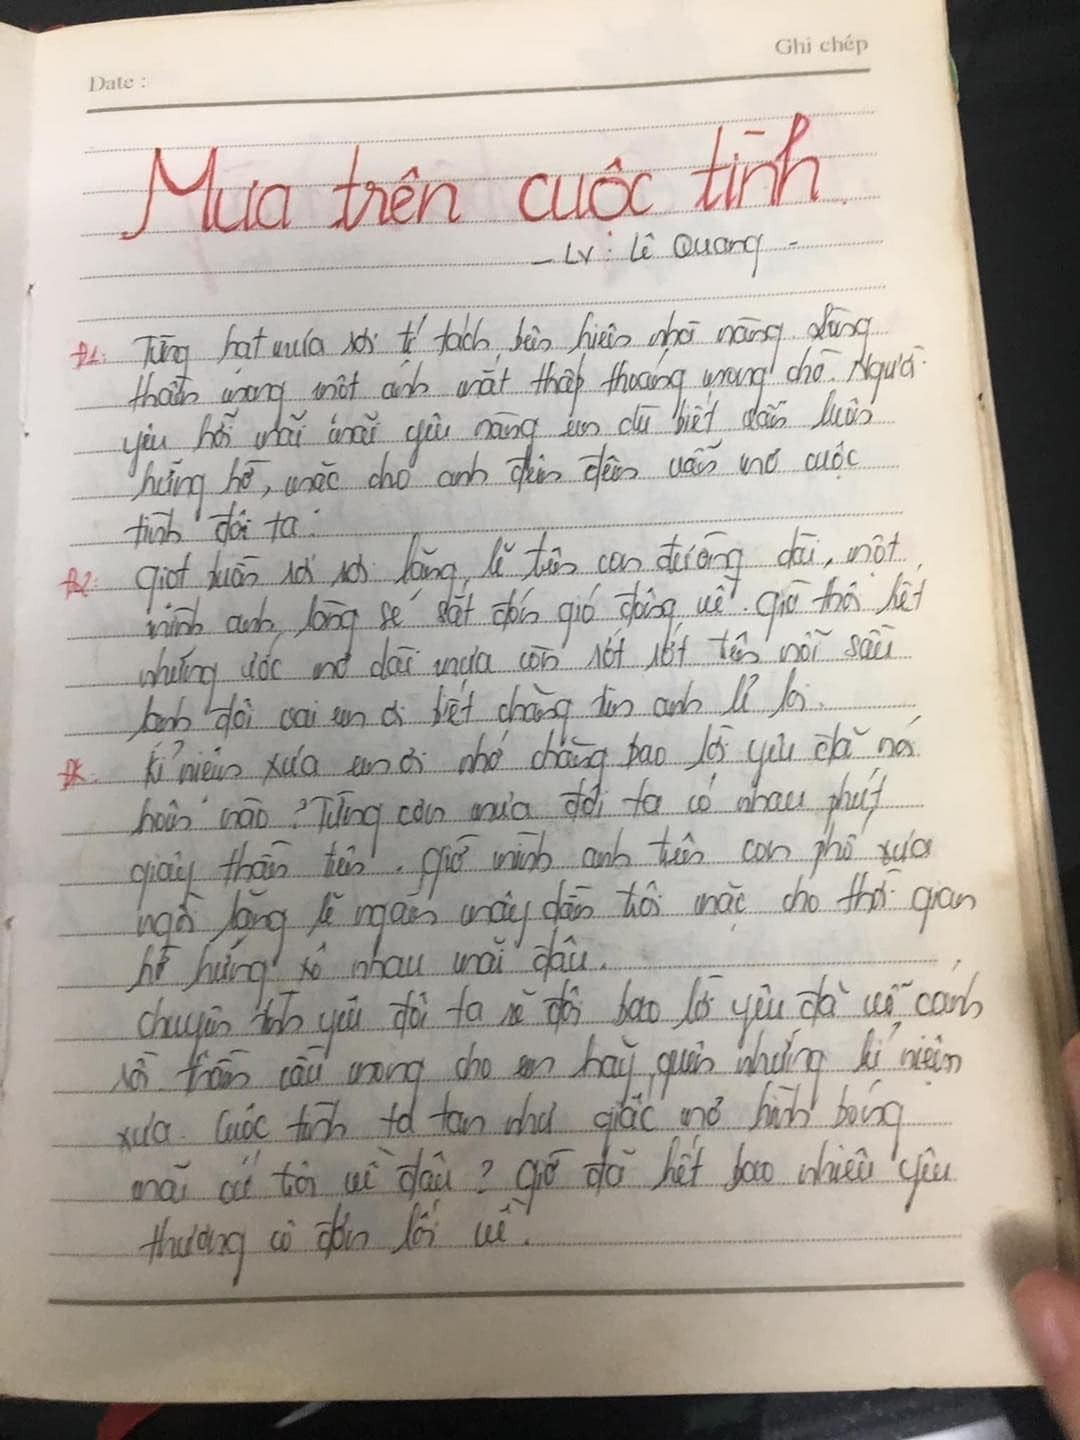 Ghi chép
Date :
Mưa trên cuộc tình.
- LV : Lê Quang -
Đ1: Từng hạt mưa rơi tí tách, bên hiên nhà nàng. Lòng
thầm mong một ánh mắt thấp thoáng mong chờ. Người
yêu hỡi mãi mãi yêu nàng em dù biết vẫn luôn
hững hờ, mặc cho anh đêm đêm vẫn mơ cuộc
tình đôi ta.
Đ2: Giọt buồn rơi rơi lặng lẽ trên con đường dài, một
mình anh lòng se sắt đón gió đông về. Giờ thôi hết
những ước mơ dài mưa còn rớt rớt trên nỗi sầu
anh đời vai em ơi biết chăng tim anh lẻ loi.
ĐK: Kỉ niệm xưa em ơi nhớ chăng bao lời yêu đã nói
hôm nào? Từng cơn mưa đôi ta có nhau phút
giây thần tiên. Giờ mình anh trên con phố xưa
ngồi lặng lẽ ngắm mây dần trôi mặc cho thời gian
hờ hững xô nhau mãi đâu.
Chuyện tình yêu đôi ta rẽ đôi bao lời yêu đã vỗ cánh
rồi thầm cầu mong cho em hãy quên những kỉ niệm
xưa. Cuộc tình ta tan như giấc mơ hình bóng
mãi cứ trôi về đâu? Giờ đã hết bao nhiêu yêu
thương cô đơn lối về.